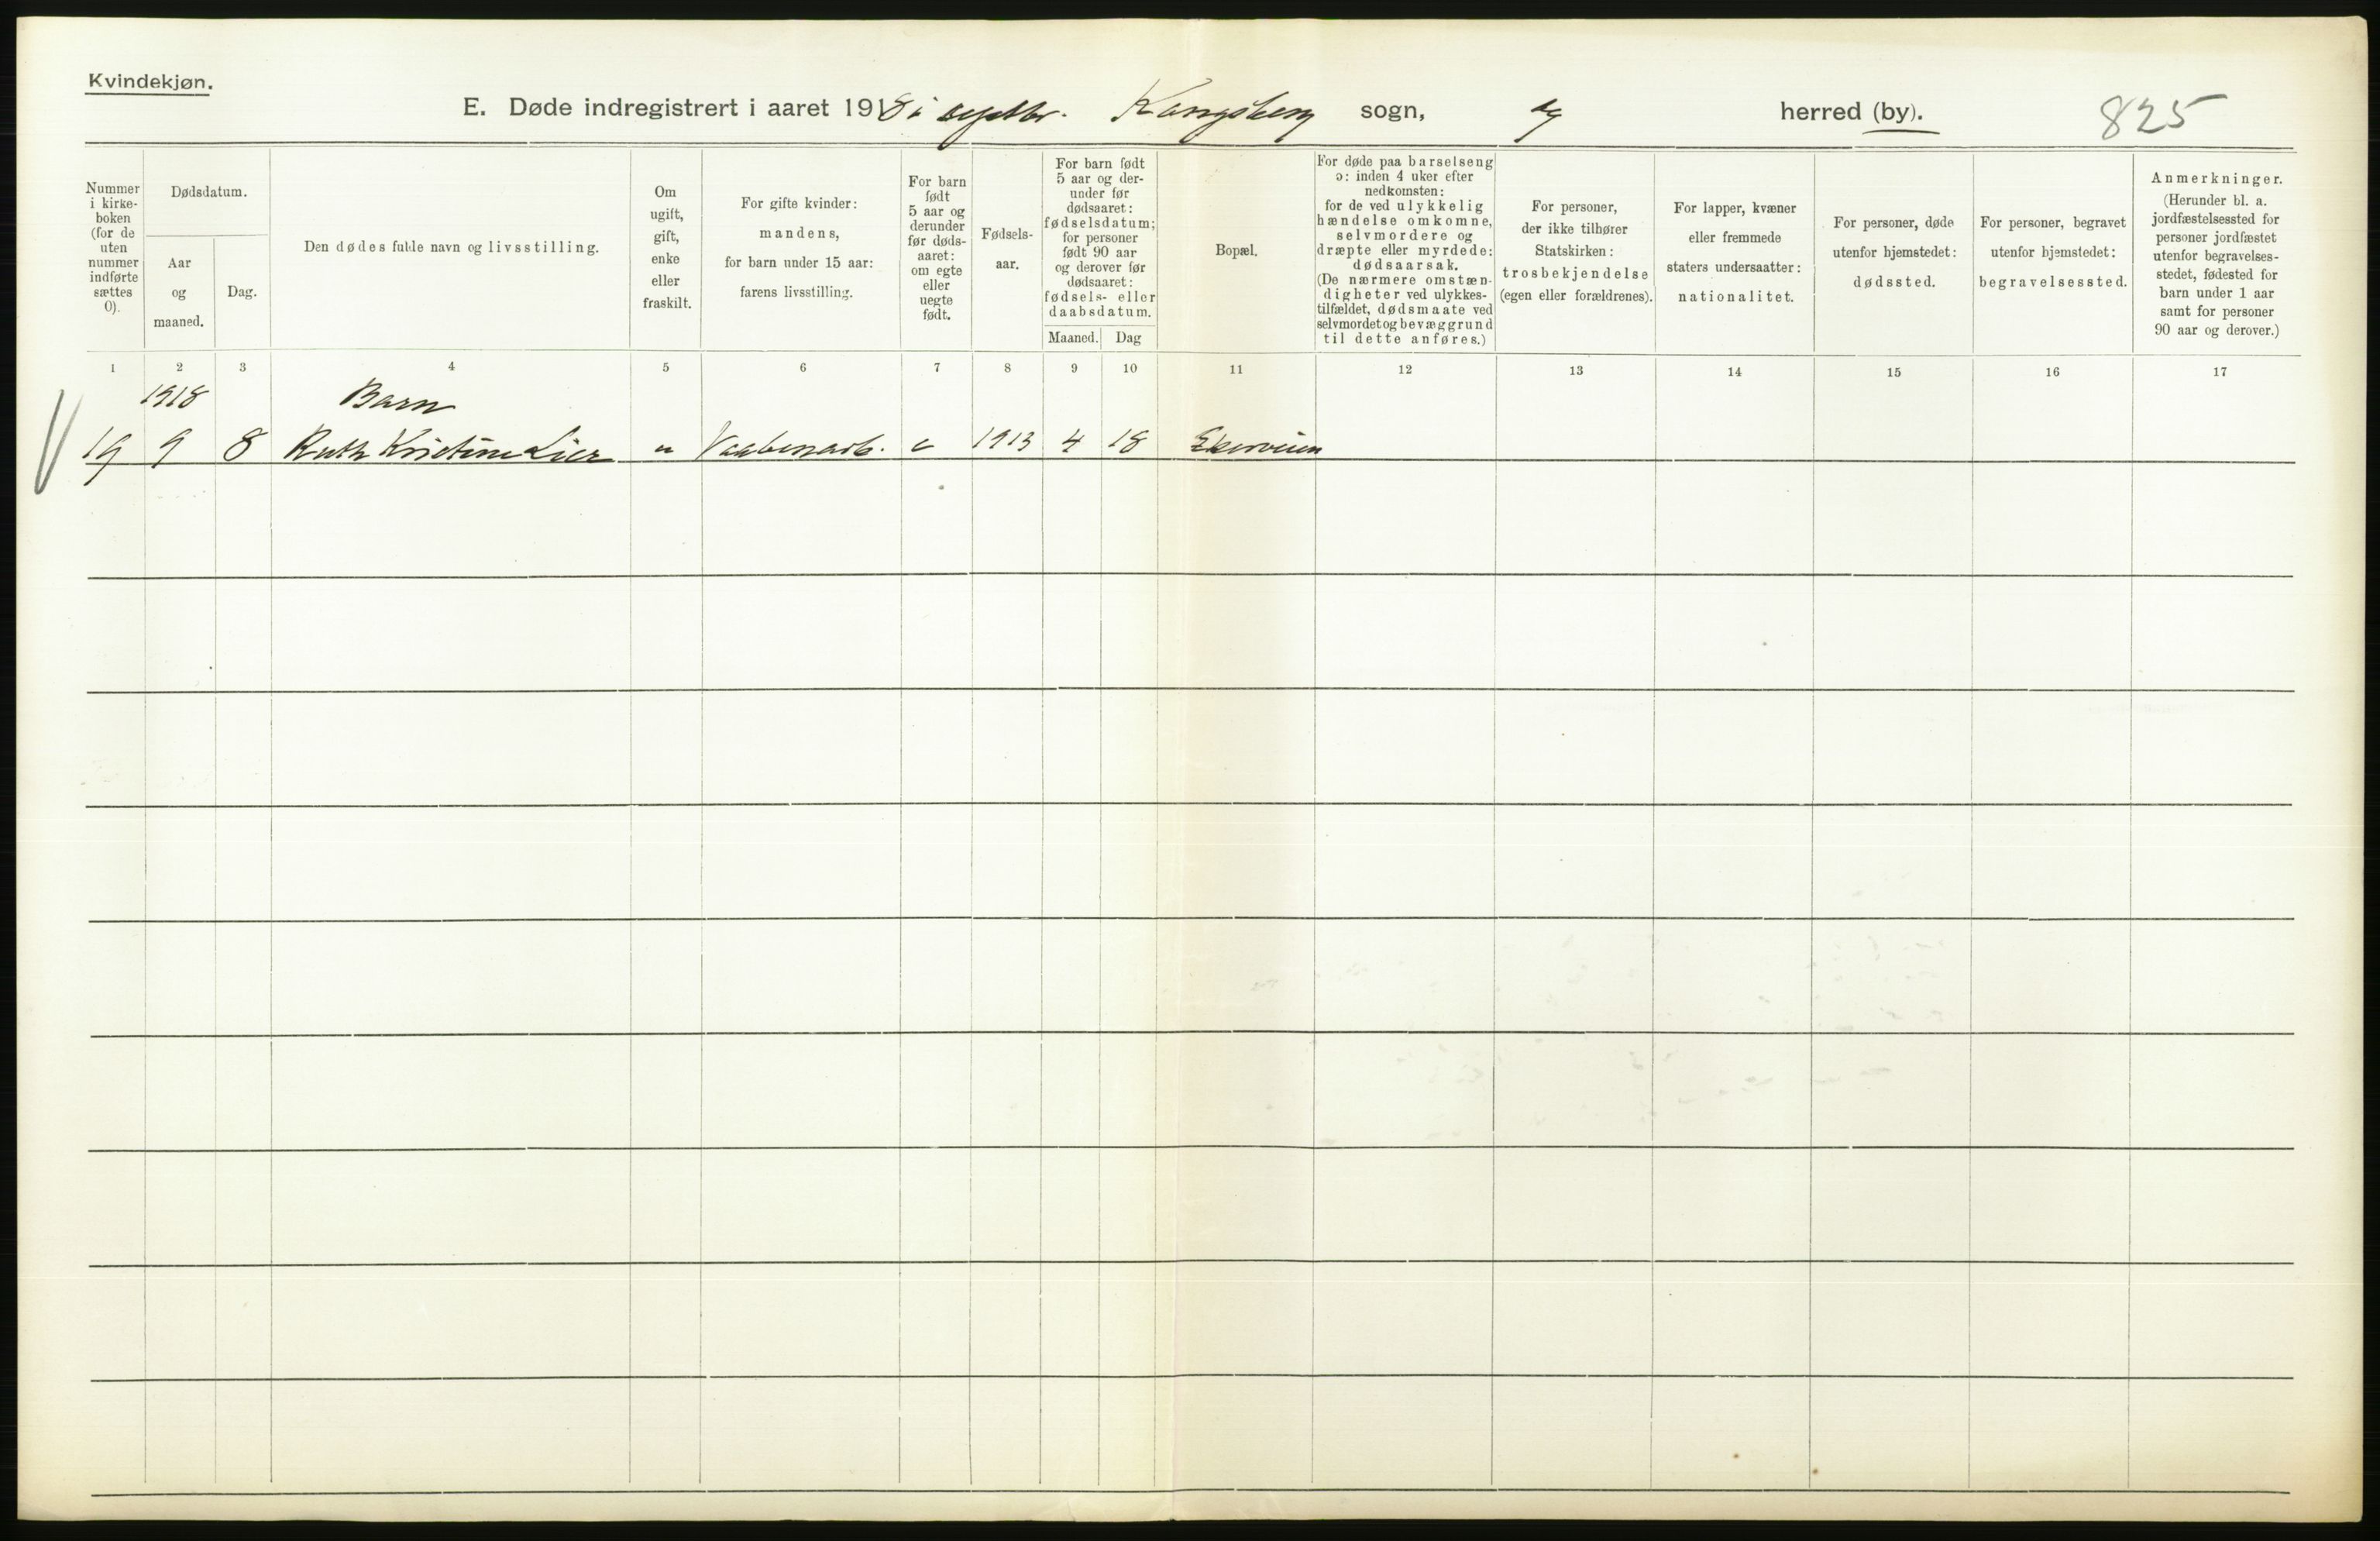 Kvindekjøn.
E. Døde indregistrert i aaret 1918 i septbr. Kongsberg sogn, og herred (by).
825
Nummer i kirke-boken (for de uten nummer indførte sættes 0).
Dødsdatum.
Aar og maaned.
Dag.
Den dødes fulde navn og livsstilling.
Om ugift, gift, enke eller fraskilt.
For gifte kvinder: mandens, for barn under 15 aar: farens livsstilling.
For barn født 5 aar og derunder før døds-aaret: om egte eller uegte født.
Fødsels-aar.
For barn født 5 aar og der-under før dødsaaret: fødselsdatum; for personer født 90 aar og derover før dødsaaret: fødsels- eller daabsdatum.
Maaned. Dag
Bopæl.
For døde paa barselseng ɔ: inden 4 uker efter nedkomsten: for de ved ulykkelig hændelse omkomne, selvmordere og dræpte eller myrdede: dødsaarsak. (De nærmere omstæn-digheter ved ulykkes-tilfældet, dødsmaate ved selvmordet og bevæggrund til dette anføres.)
For personer, der ikke tilhører Statskirken: trosbekjendelse (egen eller forældrenes).
For lapper, kvæner eller fremmede staters undersaatter: nationalitet.
For personer, døde utenfor hjemstedet: dødssted.
For personer, begravet utenfor hjemstedet: begravelsessted.
Anmerkninger. (Herunder bl. a. jordfæstelsessted for personer jordfæstet utenfor begravelses-stedet, fødested for barn under 1 aar samt for personer 90 aar og derover.)
1 2 3 4 5 6 7 8 9 10 11 12 13 14 15 16 17
1918 Barn
19 9 8 Ruth Kristine Lier u Vaabenarb. e 1913 4 18